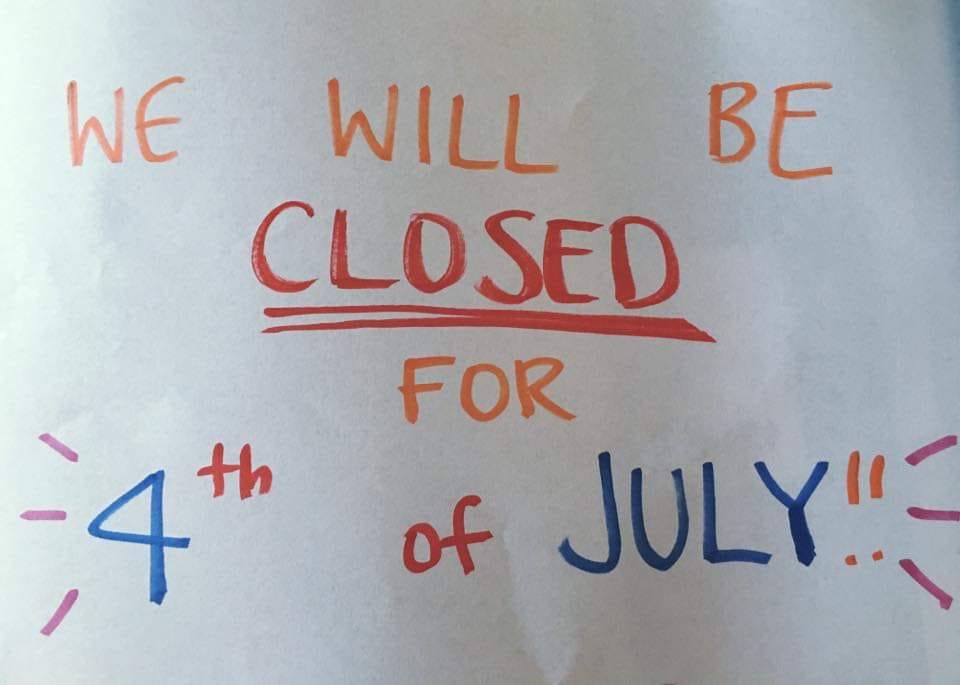 WE WILL BE
CLOSED
FOR
4th of JULY!!